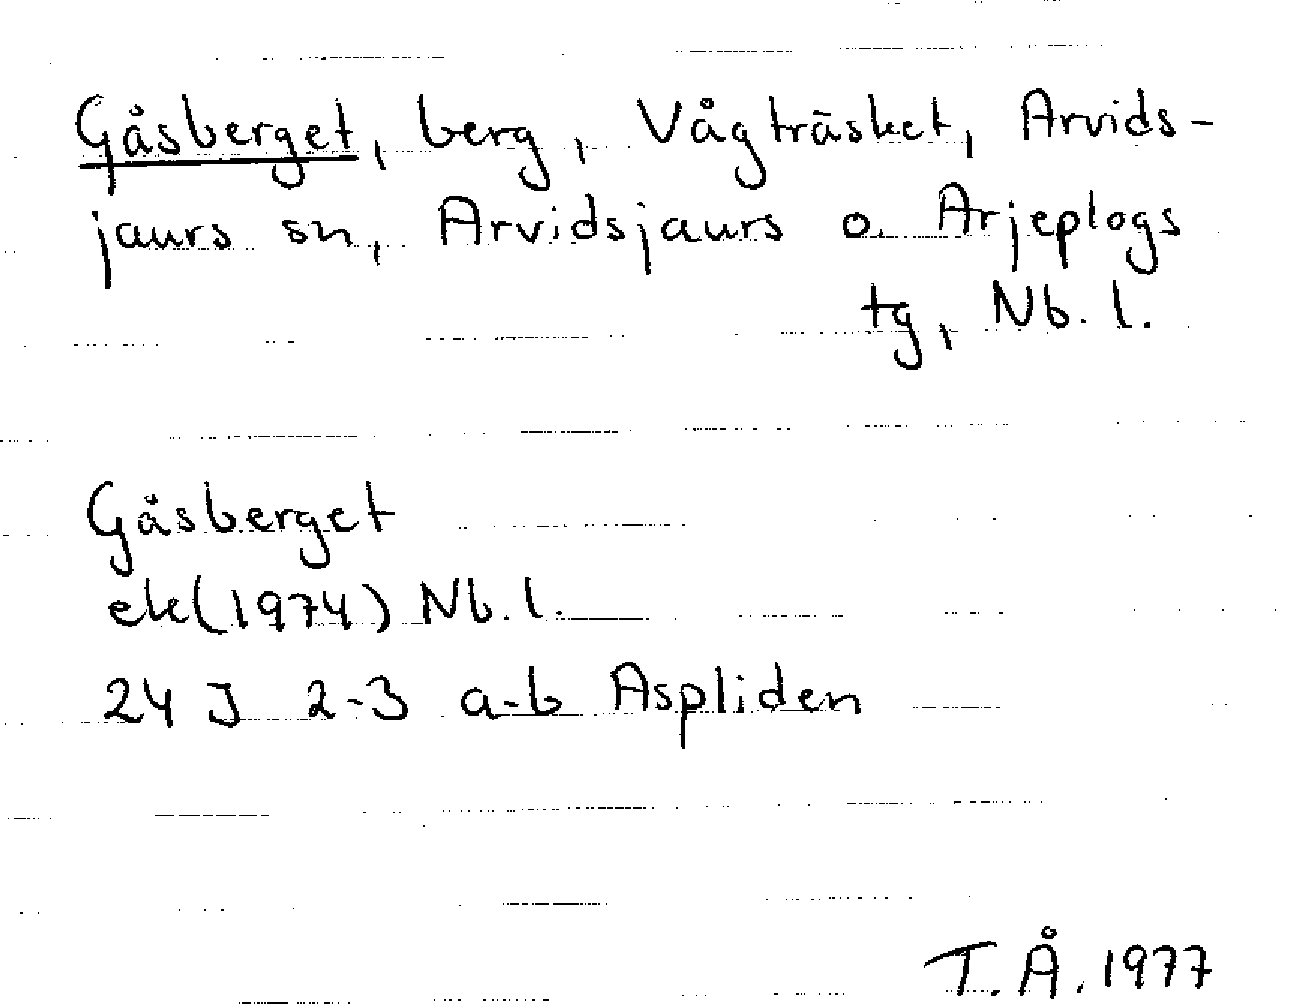 Gåsberget, berg, Vågträsket, Arvids-
jaurs sn, Arvidsjaurs o. Arjeplogs
tg, Nb. l.
Gåsberget
ek(1974) Nb. l.
24 J 2-3 a-b Aspliden
T. Å. 1977